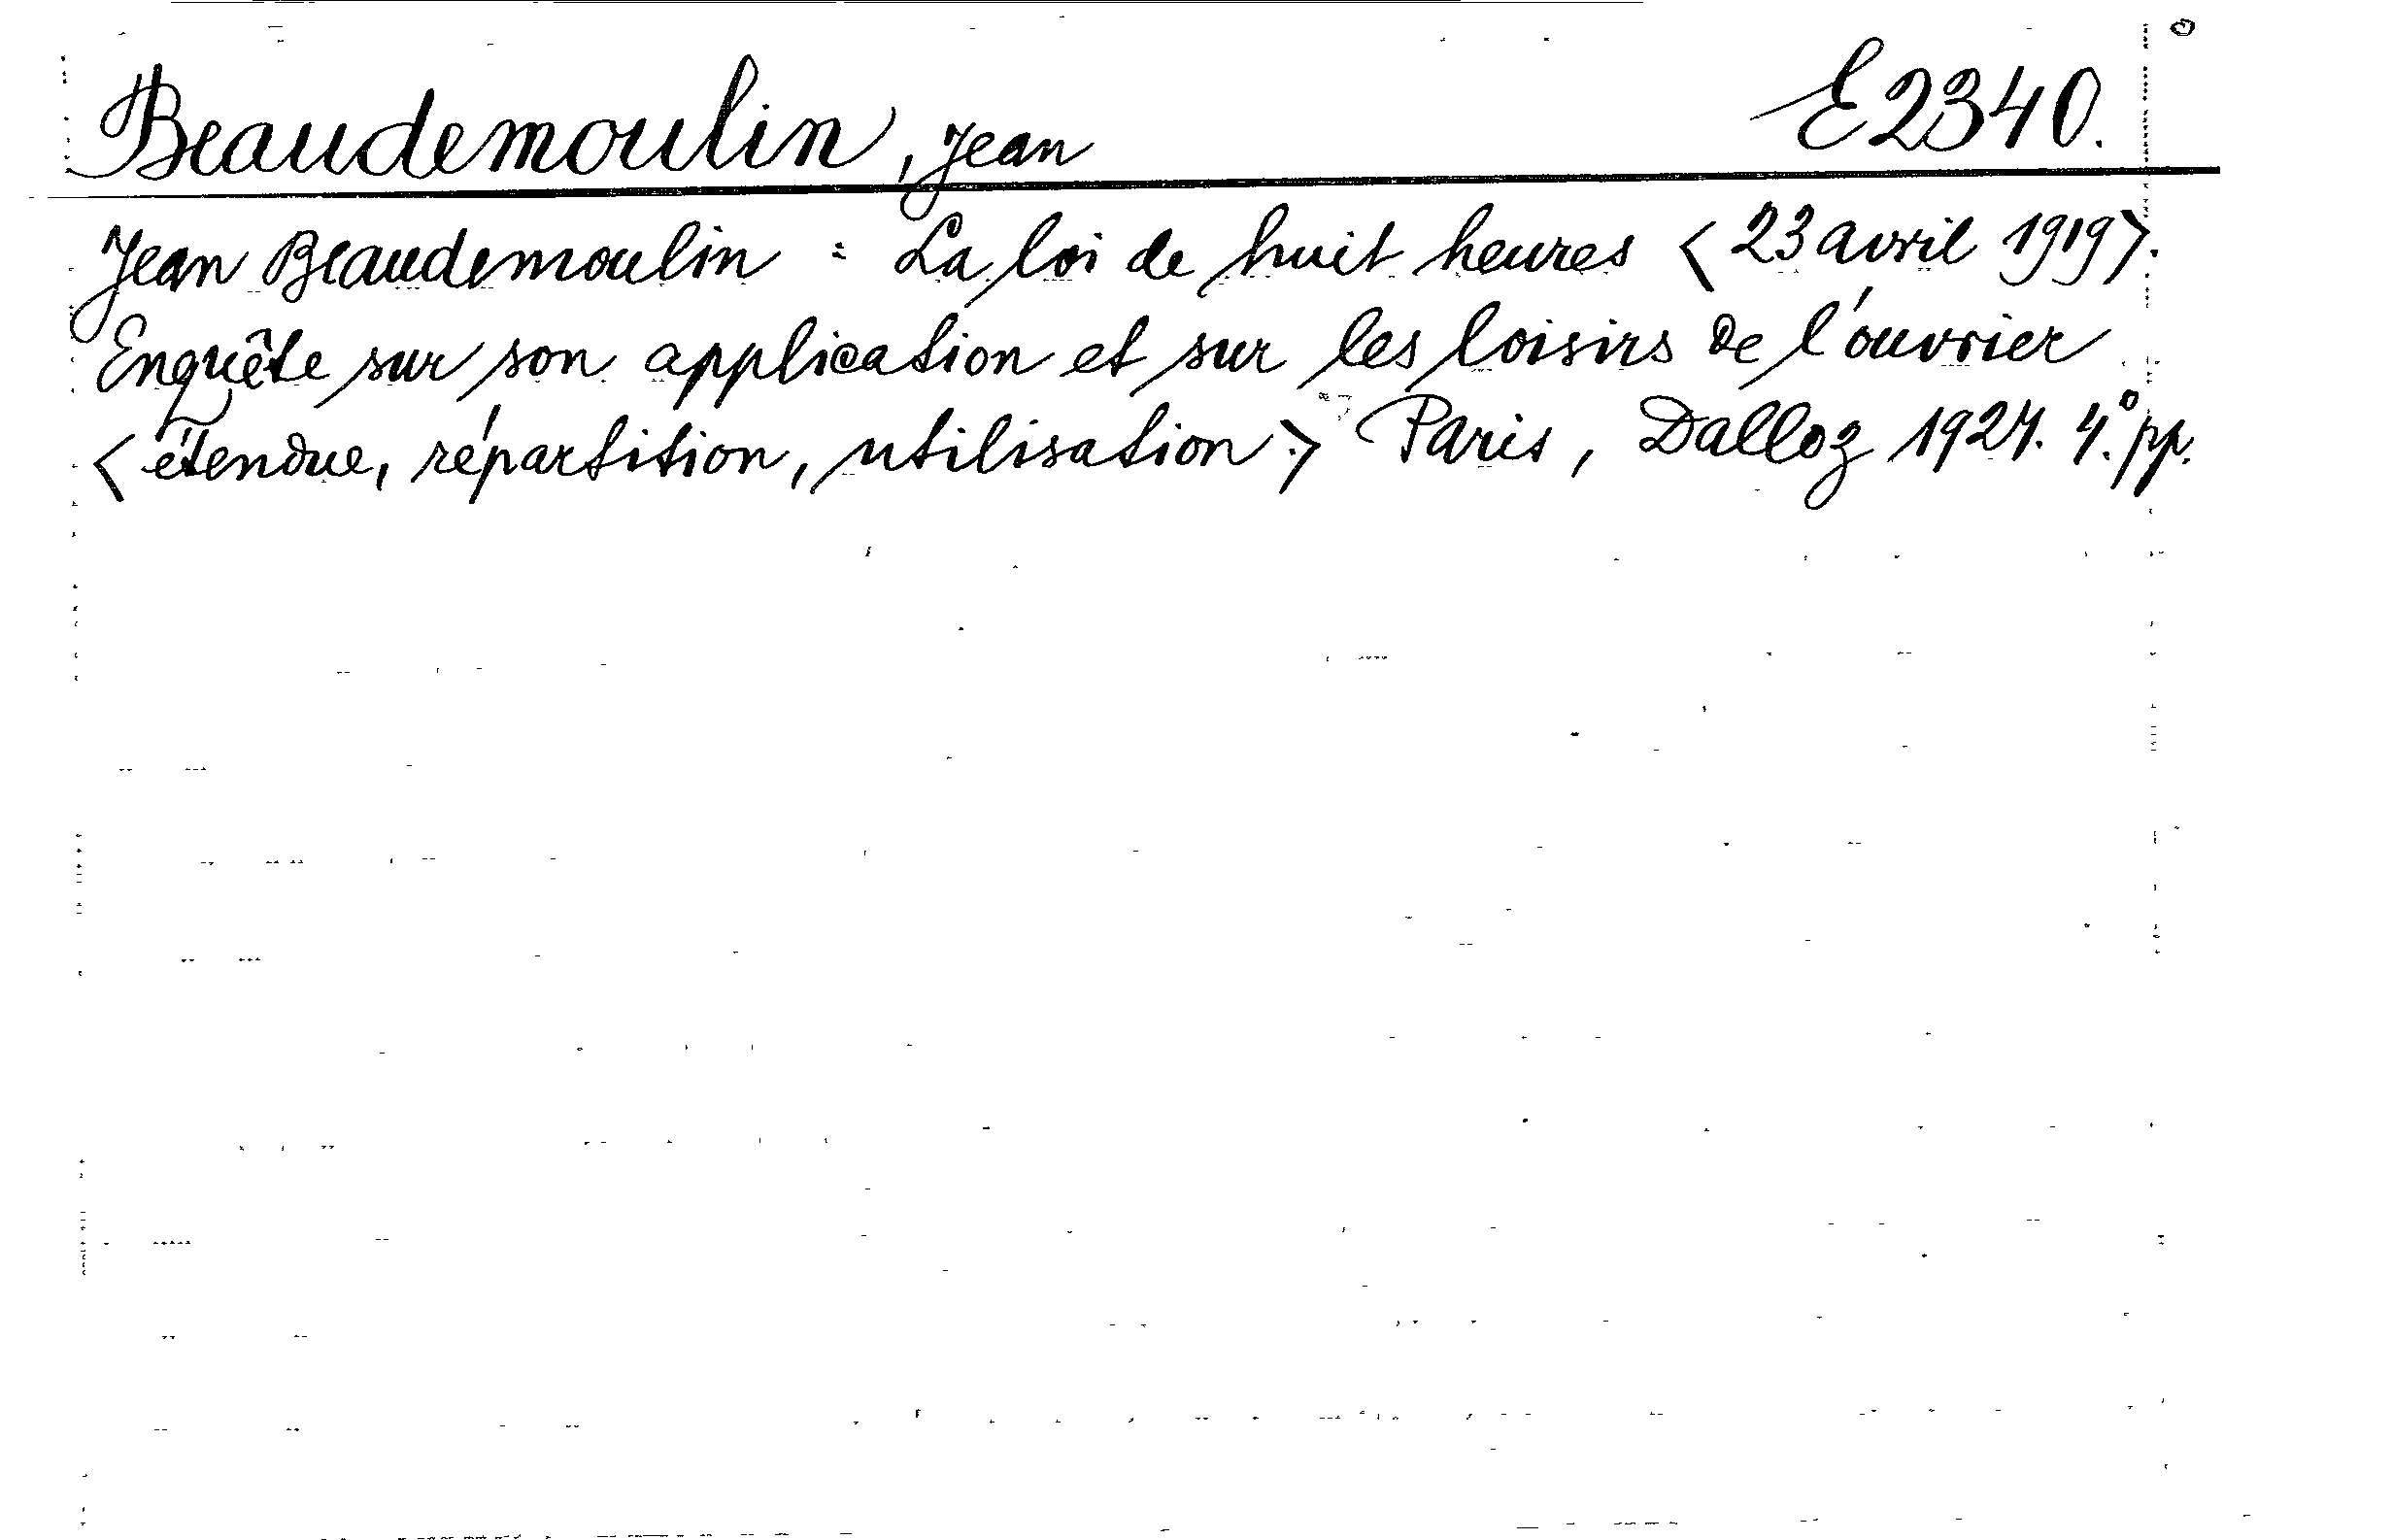 Beaudemoulin, Jean E2340.
Jean Beaudemoulin : La loi de huit heures <23 avril 1919>.
Enquête sur son application et sur les loisirs de l'ouvrier
<étendue, répartition, utilisation.> Paris, Dalloz 1924. 4.° pp.